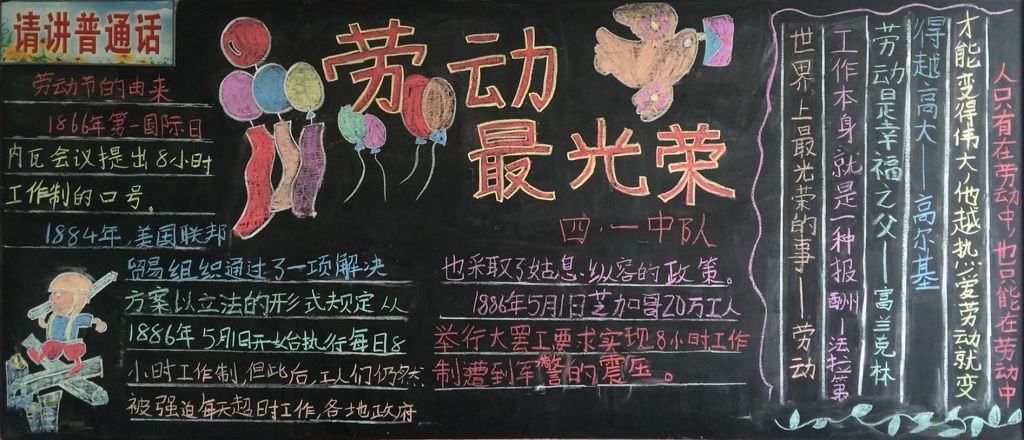 请讲普通话
劳动
最光荣
四.一中队
劳动节的由来
1866年第一国际日
内瓦会议提出8小时
工作制的口号。
1884年,美国联邦
贸易组织通过了一项解决
方案以立法的形式规定从
1886年5月1日开始执行每日8
小时工作制,但此后,工人们仍然
被强迫每天超时工作,各地政府
也采取了姑息、纵容的政策。
1886年5月1日芝加哥20万工人
举行大罢工要求实现8小时工作
制遭到军警的震压。
人只有在劳动中,也只能在劳动中
才能变得伟大,他越热心爱劳动就变
得越高大——高尔基
劳动是幸福之父——富兰克林
工作本身就是一种报酬—法拉第
世界上最光荣的事——劳动